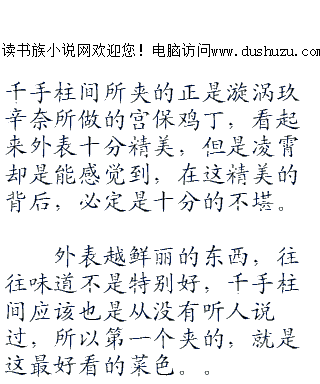 读书族小说网欢迎您！电脑访问www.dushuzu.com
千手柱间所夹的正是漩涡玖
辛奈所做的宫保鸡丁，看起
来外表十分精美，但是凌霄
却是能感觉到，在这精美的
背后，必定是十分的不堪。
外表越鲜丽的东西，往
往味道不是特别好，千手柱
间应该也是从没有听人说
过，所以第一个夹的，就是
这最好看的菜色。。